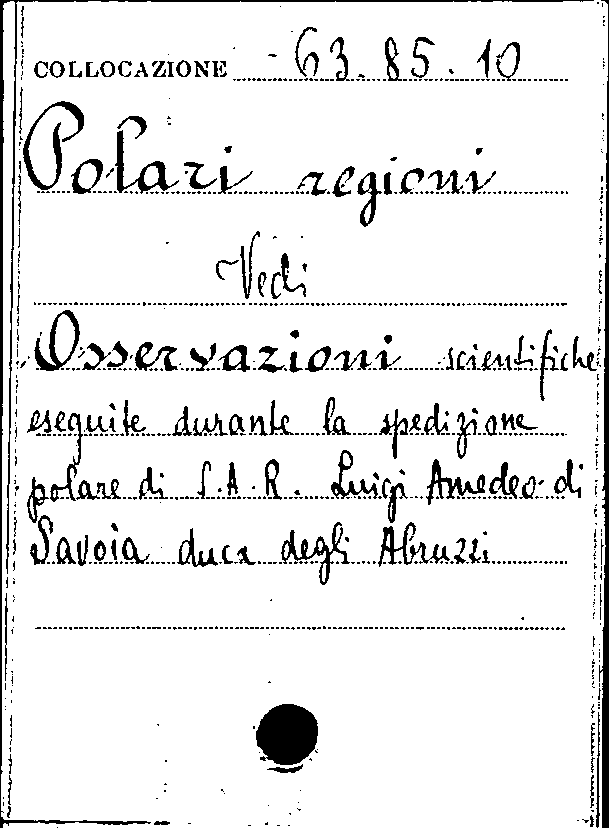 COLLOCAZIONE - 63.85.10
Polari regioni
Vedi
Osservazioni scientifiche
eseguite durante la spedizione
polare di S.A.R. Luigi Amedeo di
Savoia duca degli Abruzzi